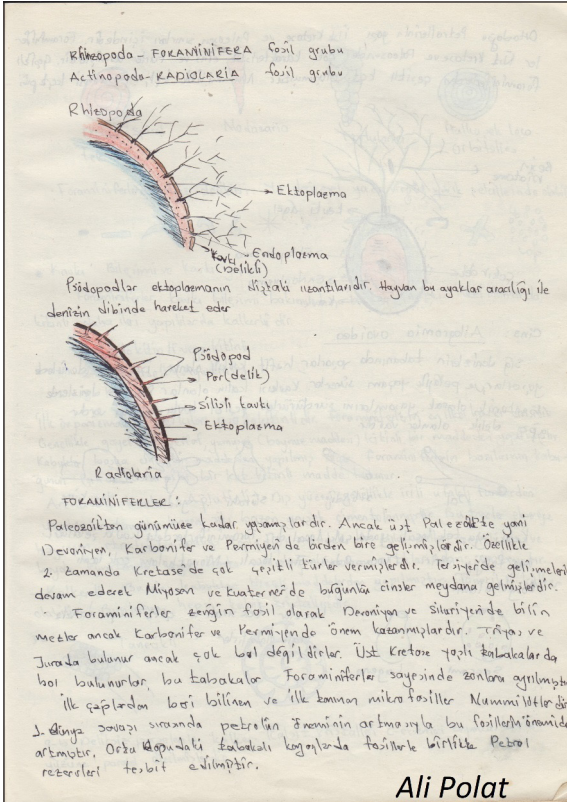 Rhizopoda - FORAMİNİFERA fosil grubu
Actinopoda - RADIOLARIA fosil grubu
Rhizopoda
Ektoplazma
Kavkı Endoplazma
(Delikli)
Psödopodlar ektoplazmanın dıştaki uzantılarıdır. Hayvan bu ayaklar aracılığı ile
denizin dibinde hareket eder
Psödopod
Por(delik)
Silisli kavkı
Ektoplazma
Radiolaria
FORAMİNİFERLER :
Paleozoikten günümüze kadar yaşamışlardır. Ancak üst Paleozikte yani
Devoniyen, Karbonifer ve Permiyen'de birden bire gelişmişlerdir. Özellikle
2. zamanda Kretase'de çok çeşitli türler vermişlerdir. Tersiyer'de gelişmeleri
devam ederek Miyosen ve Kuaterner'de bugünkü cinsler meydana gelmişlerdir.
Foraminiferler zengin fosil olarak Devoniyen ve Siluriyende bilin
mezler ancak Karbonifer ve Permiyende önem kazanmışlardır. Triyas ve
Jurada bulunur ancak çok bol değildirler. Üst Kretase yaşlı tabakalarda
bol bulunurlar, bu tabakalar Foraminiferler sayesinde zonlara ayrılmıştır
ilk çağlardan beri bilinen ve ilk tanınan mikrofosiller Nummilitlerdir
1. dünya savaşı sırasında petrolün öneminin artmasıyla bu fosillerin önemide
artmıştır. Orta Doğudaki tabakalı kayaçlarda fosillerle birlikte Petrol
rezervleri tesbit edilmiştir.
Ali Polat